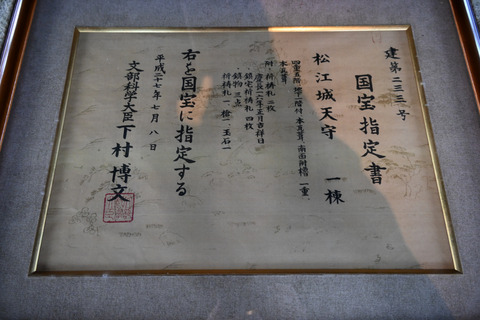 建第二三二号
国宝指定書
松江城天守 一棟
四重五階、地下一階付、本瓦葺、南面附櫓 一重、
本瓦葺
附・祈祷札 二枚
慶長十六年正月吉祥日
鎮宅祈祷札 四枚
鎮物 三点
祈祷札一、槍一、玉石一
右を国宝に指定する
平成二十七年七月八日
文部科学大臣 下村博文